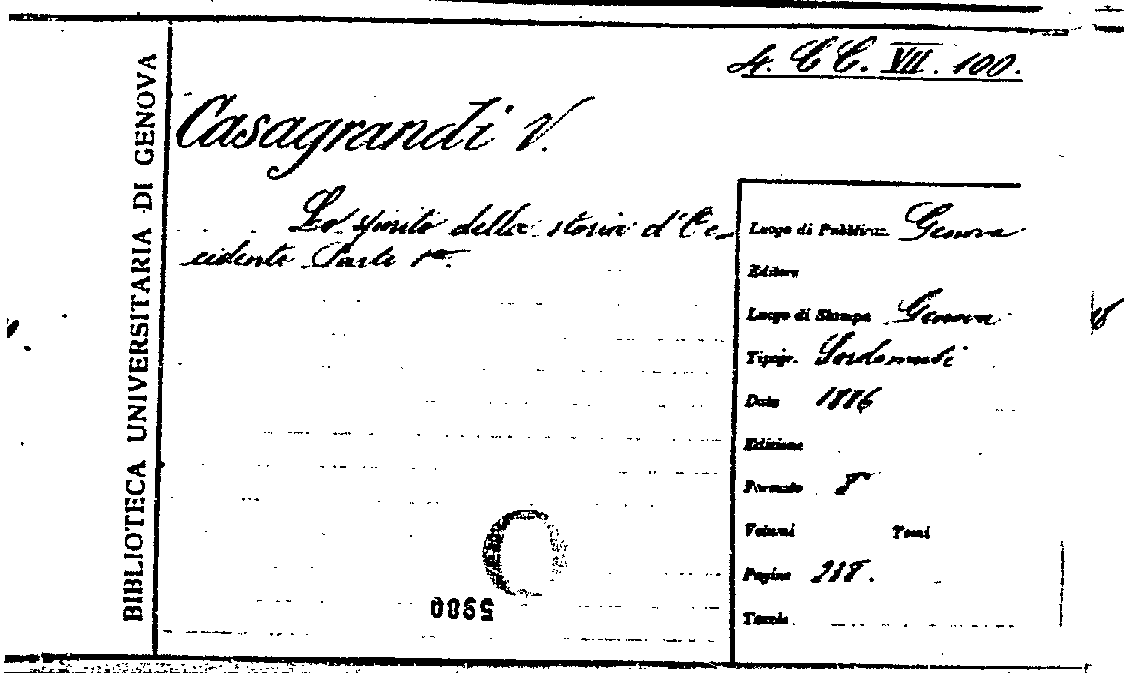 BIBLIOTECA UNIVERSITARIA DI GENOVA
4. CC. VII. 100.
Casagrandi V.
Lo spirito della storia d'Oc-
cidente Parte 1ª.
Luogo di Pubblicaz. Genova
Editore
Luogo di Stampa Genova
Tipogr. Sordomuti
Data 1886
Edizione
Formato 8°
Volumi Tomi
Pagine 218.
Tavole
O